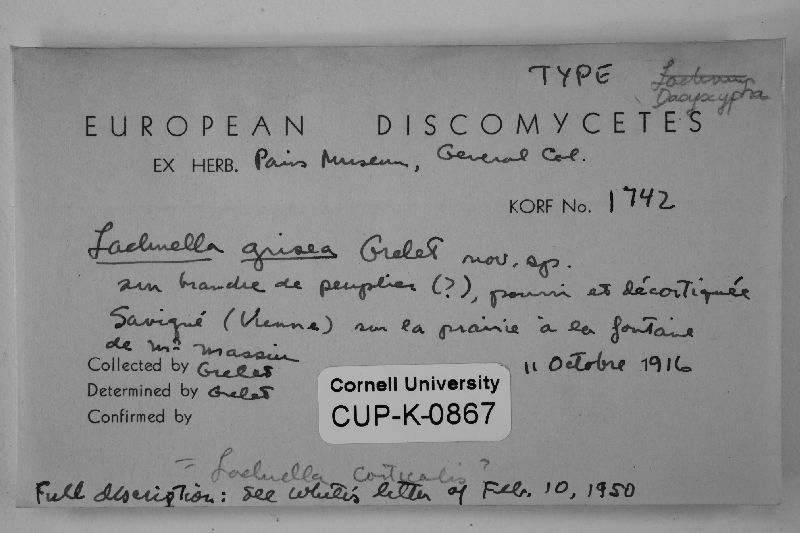 TYPE
Dasyscypha
EUROPEAN DISCOMYCETES
EX HERB. Paris Museum, General Col.
KORF No. 1742
Lachnella grisea Grelet nov. sp.
sur branche de peuplier (?), pourri et décortiquée
Savigné (Vienne) sur la prairie à la fontaine
de Mr Massin
Collected by Grelet 11 Octobre 1916
Determined by Grelet
Confirmed by
Cornell University
CUP-K-0867
= Lachnella corticalis?
Full description: see White's letter of Feb. 10, 1950